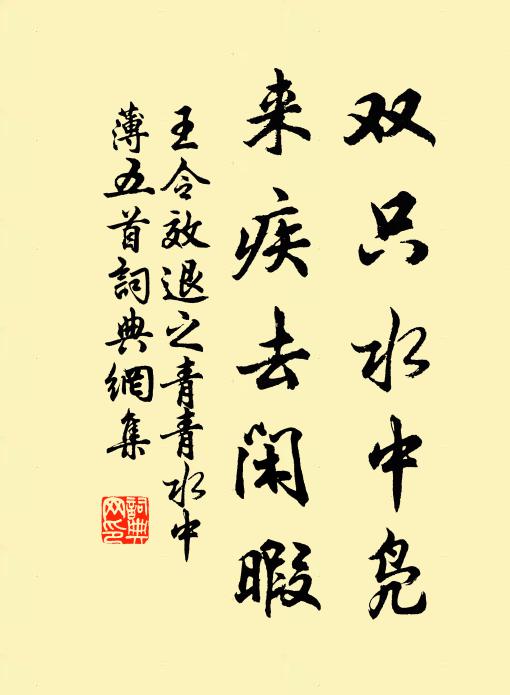 双只水中凫
来疾去闲暇
王令效退之青青水中
薄五首詞典網集
詞典
网印